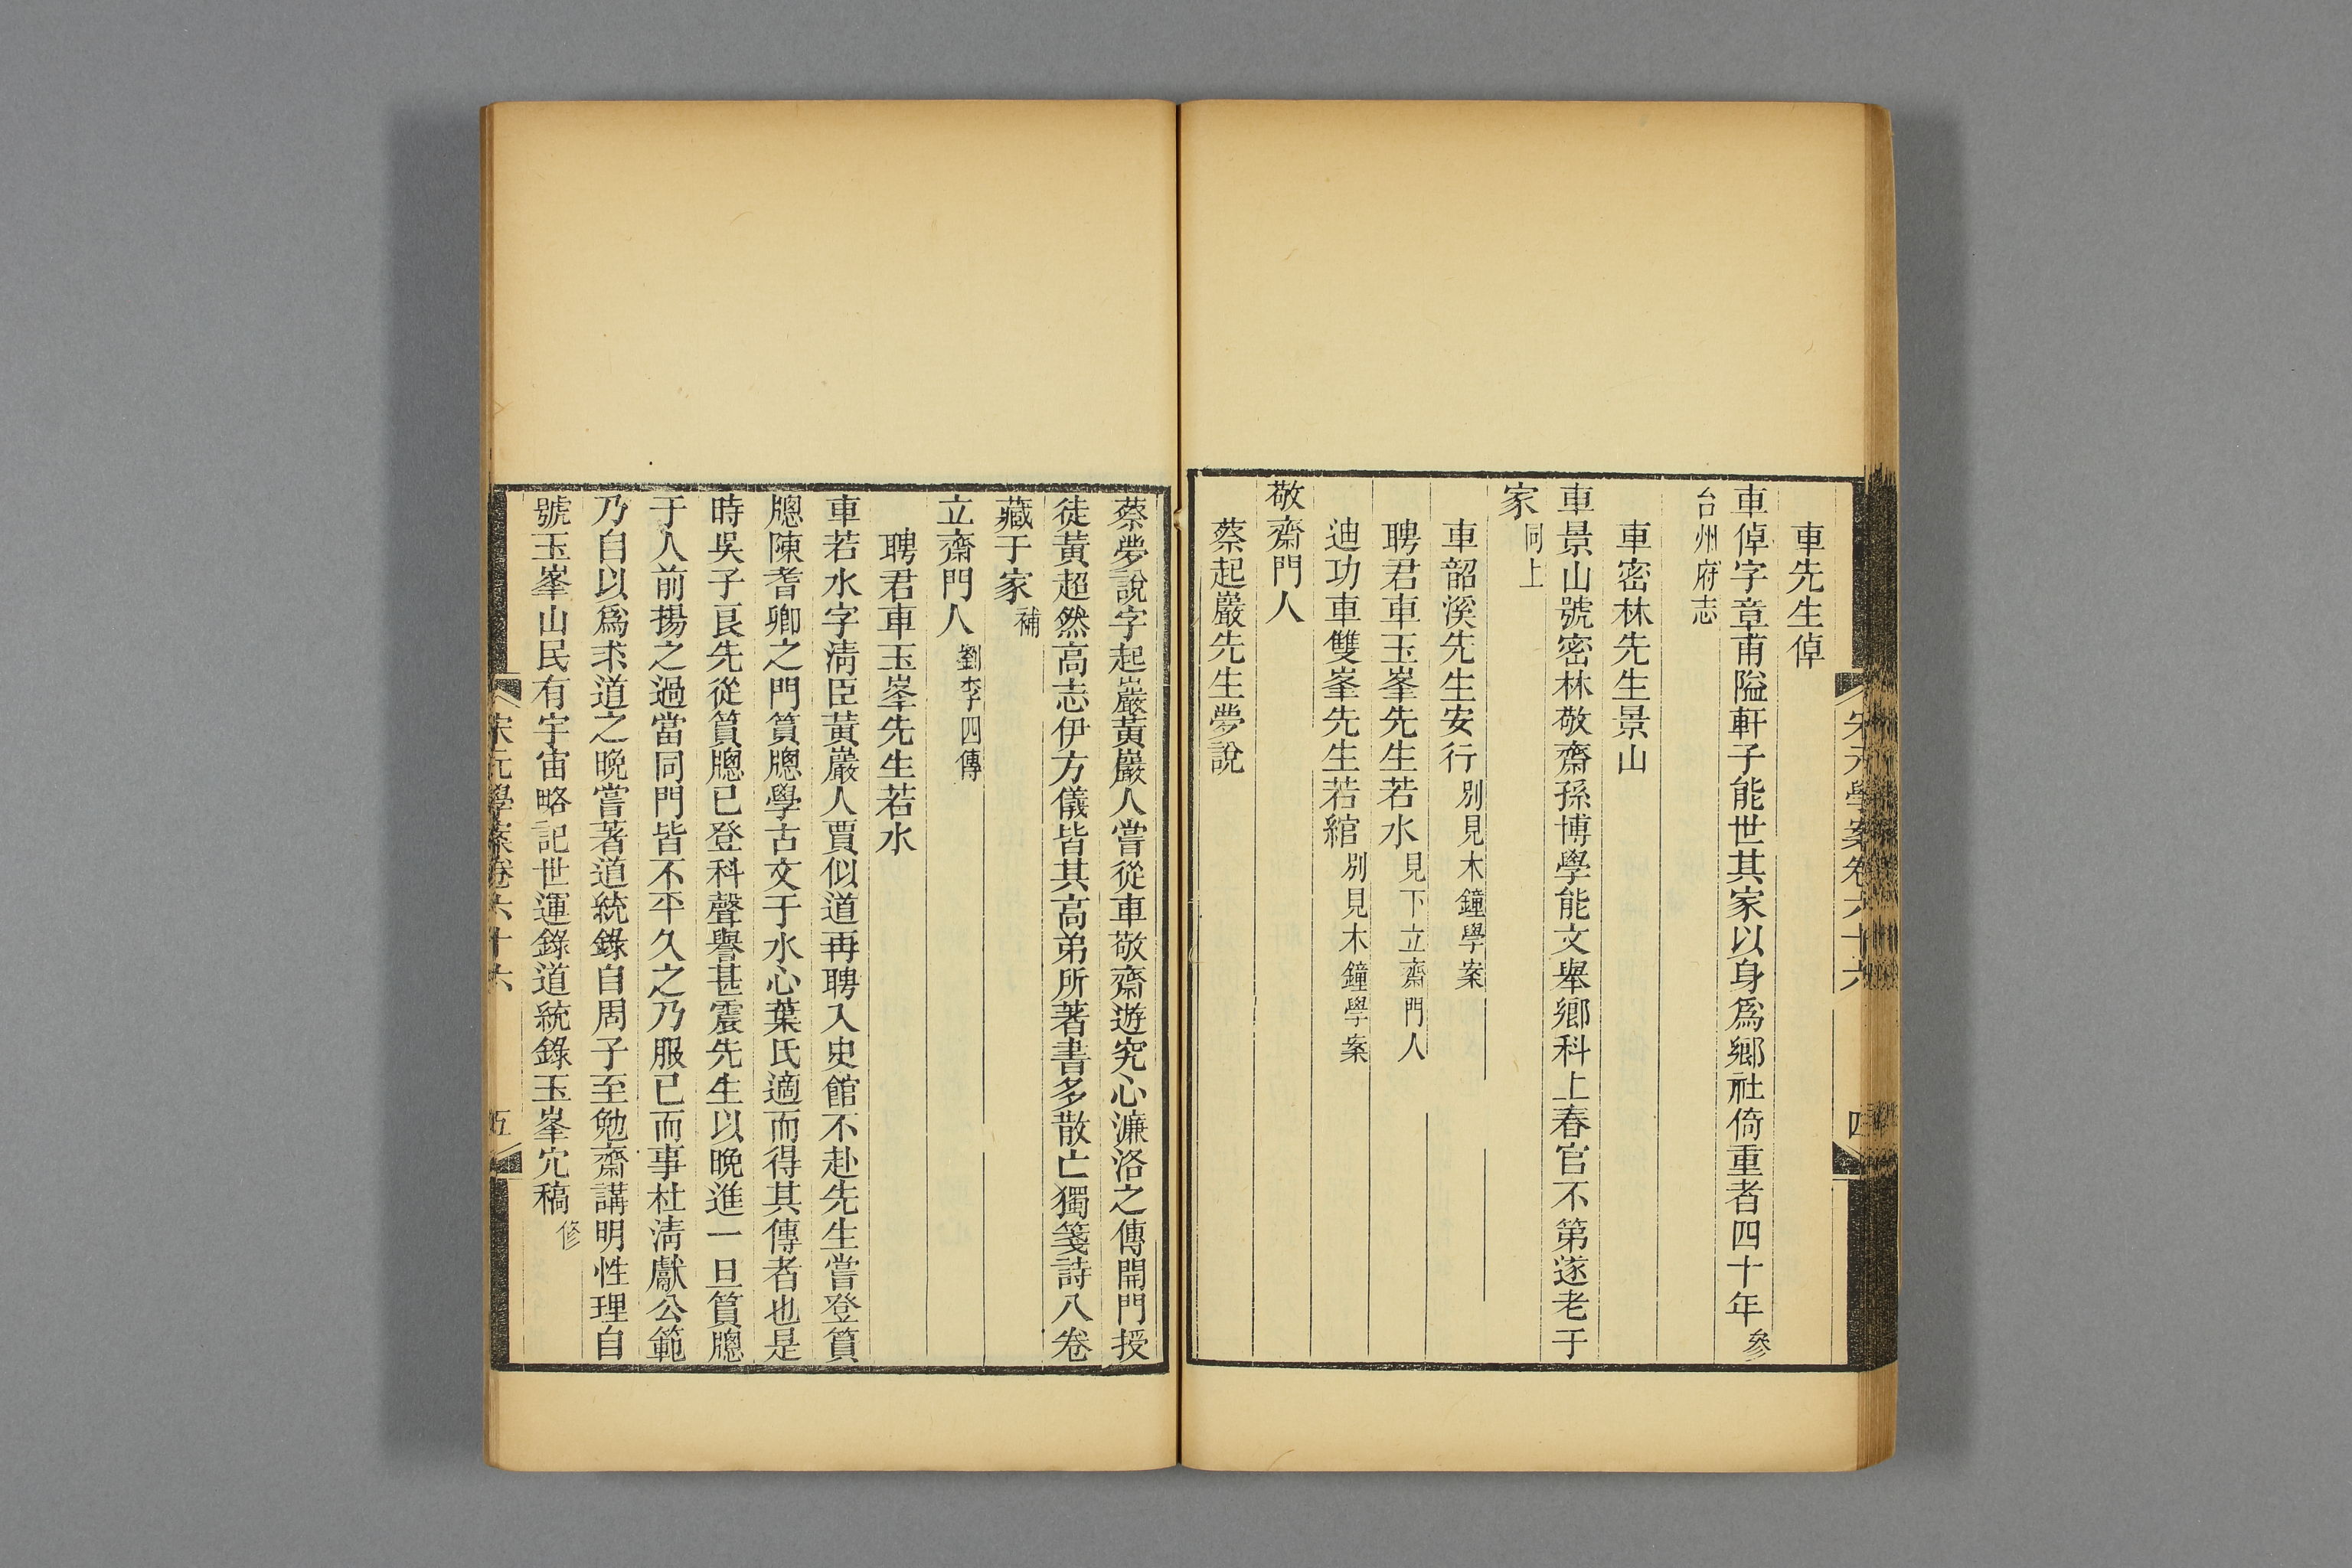 宋元學案卷六十六
四
車先生倬
車倬字章甫隘軒子能世其家以身爲鄉社倚重者四十年參
台州府志
車密林先生景山
車景山號密林敬齋孫博學能文舉鄉科上春官不第遂老于
家同上
車韶溪先生安行別見木鐘學案
聘君車玉峯先生若水見下立齋門人
迪功車雙峯先生若綰別見木鐘學案
敬齋門人
蔡起巖先生夢說
蔡夢說字起巖黃巖人嘗從車敬齋遊究心濂洛之傳開門授
徒黃超然高志伊方儀皆其高弟所著書多散亡獨箋詩八卷
藏于家補
立齋門人劉李四傳
聘君車玉峯先生若水
車若水字淸臣黃巖人賈似道再聘入史館不赴先生嘗登篔
牕陳耆卿之門篔牕學古文于水心葉氏適而得其傳者也是
時吳子良先從篔牕已登科聲譽甚震先生以晚進一旦篔牕
于人前揚之過當同門皆不平久之乃服已而事杜淸獻公範
乃自以爲求道之晚嘗著道統錄自周子至勉齋講明性理自
號玉峯山民有宇宙略記世運錄道統錄玉峯宂稿修
宋元學案卷六十六
五